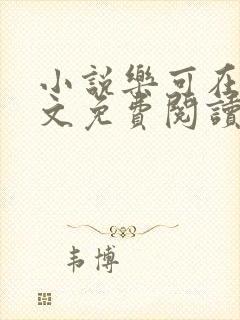 小説樂可在
文免費閱讀
韦博